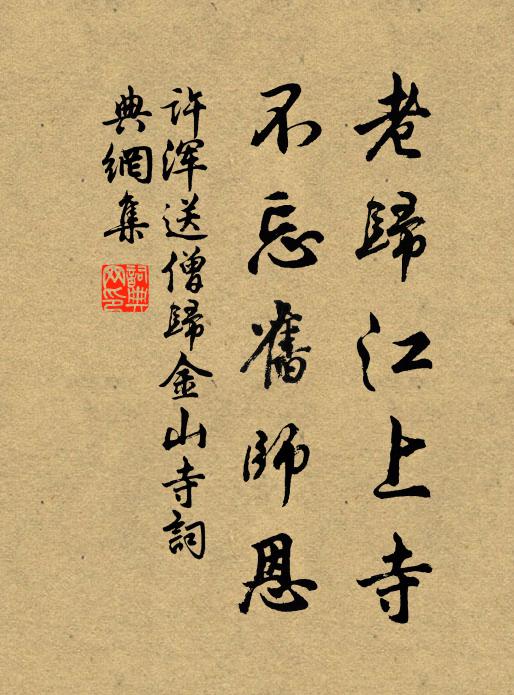 老歸江上寺
不忘舊師恩
許渾送僧歸金山寺詞
典網集
詞典網印